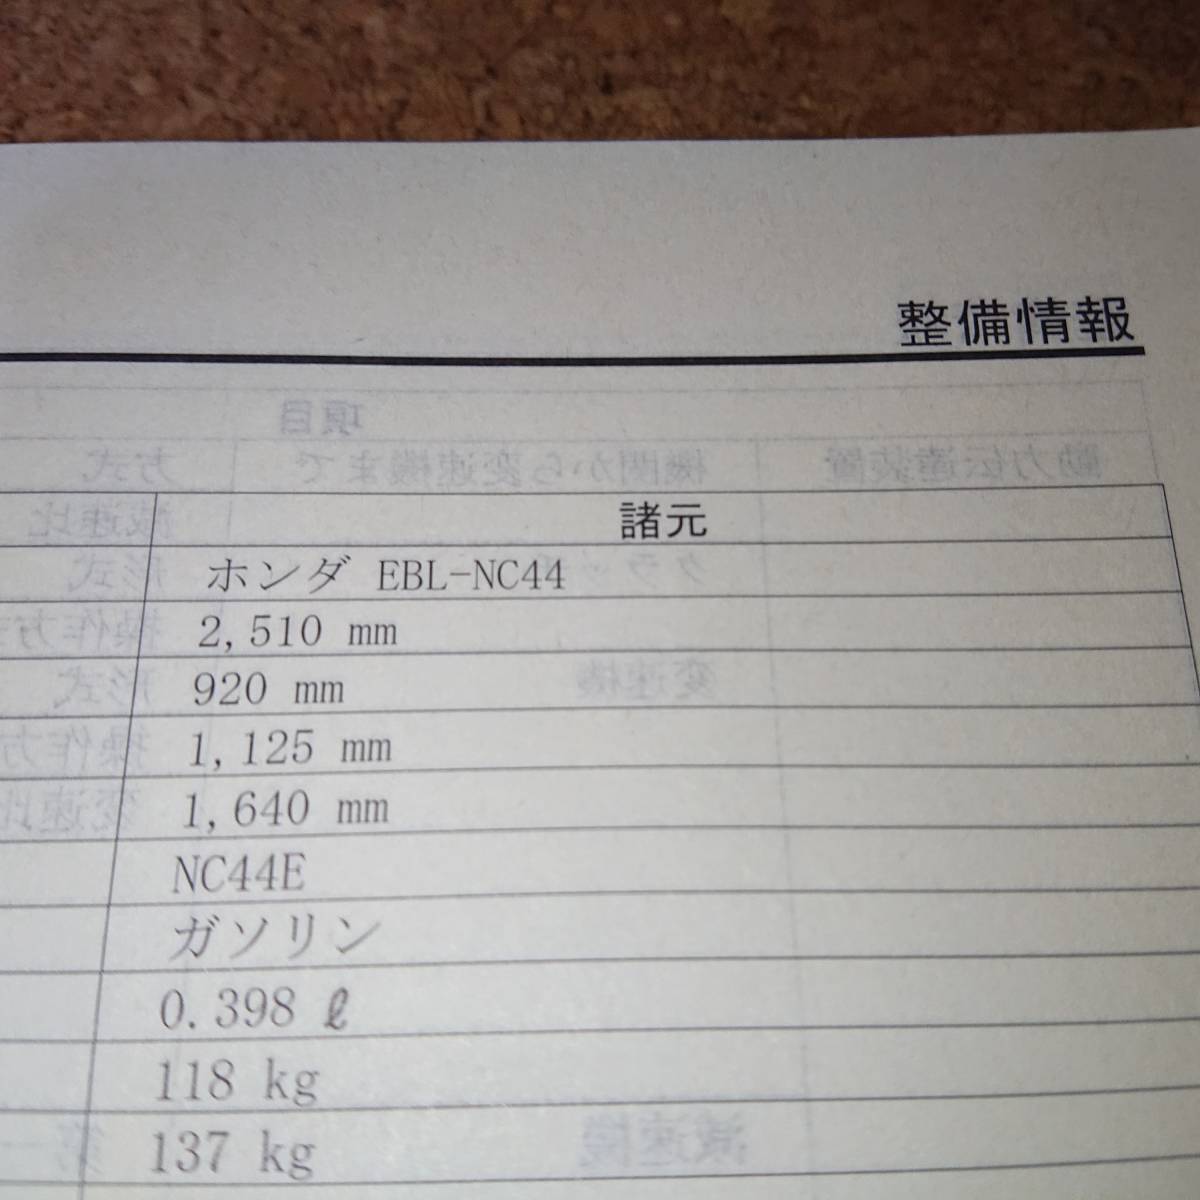 整備情報
諸元
ホンダ EBL-NC44
2,510 mm
920 mm
1,125 mm
1,640 mm
NC44E
ガソリン
0.398 ℓ
118 kg
137 kg